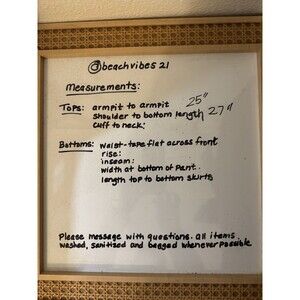 @beachvibes21
Measurements:
Tops: armpit to armpit 25"
shoulder to bottom length 27"
cuff to neck:
Bottoms: waist-tape flat across front
rise:
inseam:
width at bottom of pant.
length top to bottom skirts
Please message with questions. all items
washed, sanitized and bagged whenever possible